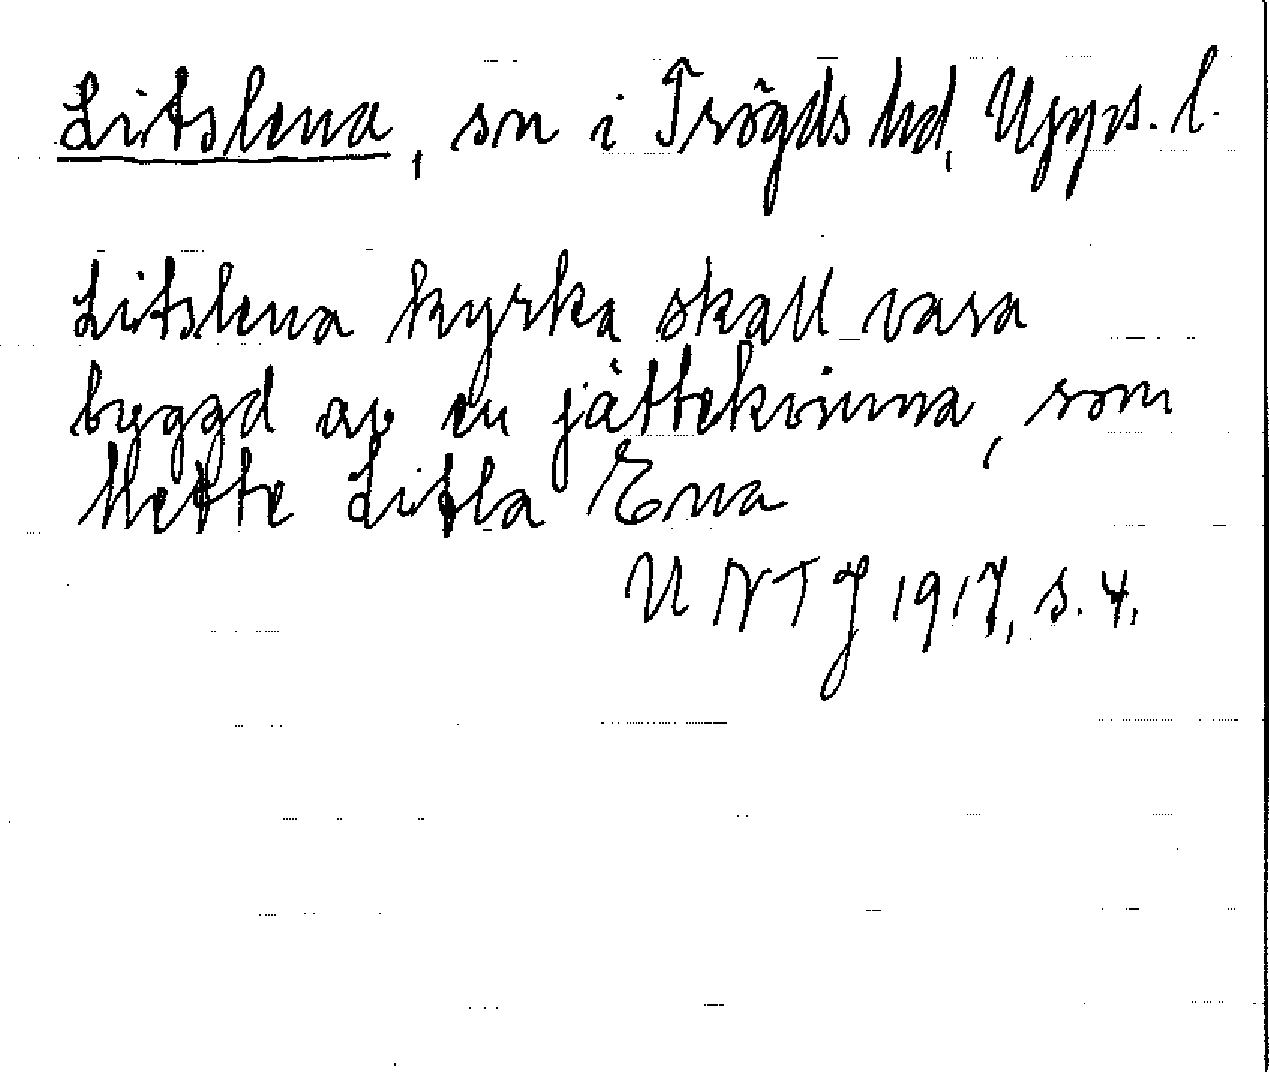 Litslena, sn i Trögds hd, Upps. l.
Litslena kyrka skall vara
byggd av en jättekvinna, som
hette Litla Ena
UNTJ 1917, s. 4.